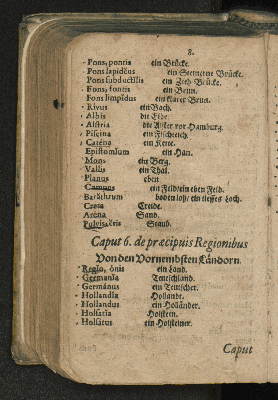 8.
Pons, pontis ein Brücke.
Pons lapidĕus ein Steinerne Brücke.
Pons subductilis ein Zieh Brücke.
Fons, fontis ein Brun.
Fons limpĭdus ein klarer Brun.
Rivus ein Bach.
Albis die Elbe.
Alstria die Alster vor Hamburg.
Piscina ein Fischteich.
Catēna ein Kette.
Epistomĭum ein Han.
Mons ein Berg.
Vallis ein Thal.
Planus eben
Campus ein Feld/ein eben Feld.
Barăthrum boden loß/ein tieffes Loch.
Creta Creide.
Arēna Sand.
Pulvis, ĕris Staub.
Caput 6. de præcipuis Regionibus
Von den Vornembsten Ländorn.
Regio, ōnis ein Land.
Germanĭa Teutschland.
Germānus ein Teutscher.
Hollandĭa Hollandt.
Hollandus ein Holländer.
Holsatĭa Holstein.
Holsātus ein Holsteiner.
Caput